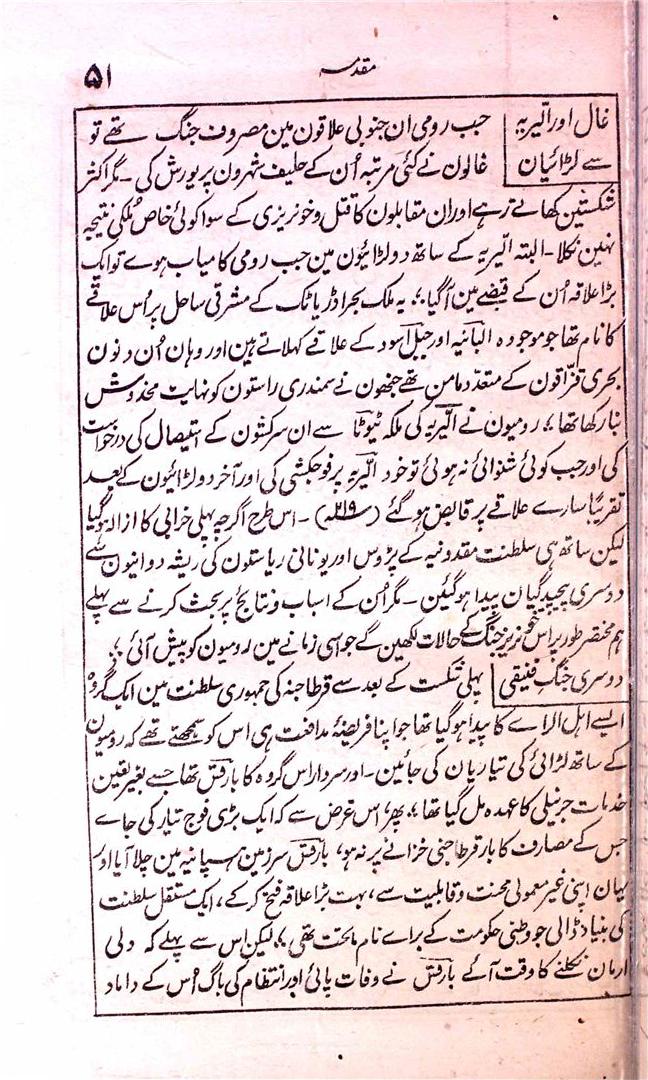 مقدمہ
۵۱
غال اور الّیریہ
سے لڑائیان
جب رومی ان جنوبی علاقون مین مصروف جنگ تھے تو
غالون نے کئی مرتبہ اُن کے حلیف شہرون پر یورش کی ۔ مگر اکثر
شکستین کھاتے رہے اور ان مقابلون کا قتل و خونریزی کے سوا کوئی خاص مُلکی نتیجہ
نہین نکلا ۔ البتہ الّیریہ کے ساتھ دو لڑائیون مین جب رومی کامیاب ہوے تو ایک
بڑا علاقہ اُن کے قبضے مین آگیا ؛ یہ ملک بحر اڈریاٹک کے مشرقی ساحل پر اُس علاقے
کا نام تھا جو موجودہ البانیہ اور جبل اسود کے علاقے کہلاتے ہین اور وہان اُن دنون
بحری قزّاقون کے متعدد مامن تھے جنھون نے سمندری راستون کو نہایت مخدوش
بنا رکھا تھا ؛ رومیون نے الّیریہ کی ملکہ ٹیوٹا سے ان سرکشون کے استیصال کی درخواست
کی اور جب کوئی شنوائی نہ ہوئی تو خود الّیریہ پر فوجکشی کی اور آخر دو لڑائیون کے بعد
تقریباً سارے علاقے پر قابض ہوگئے (۲۱۹؁) ۔ اس طرح اگرچہ پہلی خرابی کا ازالہ ہوگیا
لیکن ساتھ ہی سلطنت مقدونیہ کے پڑوس اور یونانی ریاستون کی ریشہ دوانیون سے
دوسری پیچیدگیان پیدا ہوگئین ۔ مگر اُن کے اسباب و نتائج پر بحث کرنے سے پہلے
ہم مختصر طور پر اس خونریز جنگ کے حالات لکھین گے جو اسی زمانے مین رومیون کو پیش آئی ؛
دوسری جنگ فنیقی
پہلی شکست کے بعد سے قرطاجنہ کی جمہوری سلطنت مین ایک گروہ
ایسے اہل الراے کا پیدا ہوگیا تھا جو اپنا فریضۂ مدافعت ہی اس کو سمجھتے تھے کہ رومیون
کے ساتھ لڑائی کی تیاریان کی جائین ۔ اور سردار اس گروہ کا بارقش تھا جسے بغیر یقین
خدمات جرنیلی کا عہدہ مل گیا تھا ؛ پھر، اس غرض سے کہ ایک بڑی فوج تیار کی جاے
جس کے مصارف کا بار قرطاجنی خزانے پر نہ ہو، بارقش سرزمین ہسپانیہ مین چلا آیا اور
یہان اپنی غیر معمولی محنت و قابلیت سے، بہت بڑا علاقہ فتح کرکے، ایک مستقل سلطنت
کی بنیاد ڈالی جو وطنی حکومت کے براے نام ماتحت تھی ؛ لیکن اس سے پہلے کہ دلی
ارمان نکلنے کا وقت آئے بارقش نے وفات پائی اور انتظام کی باگ اُس کے داماد